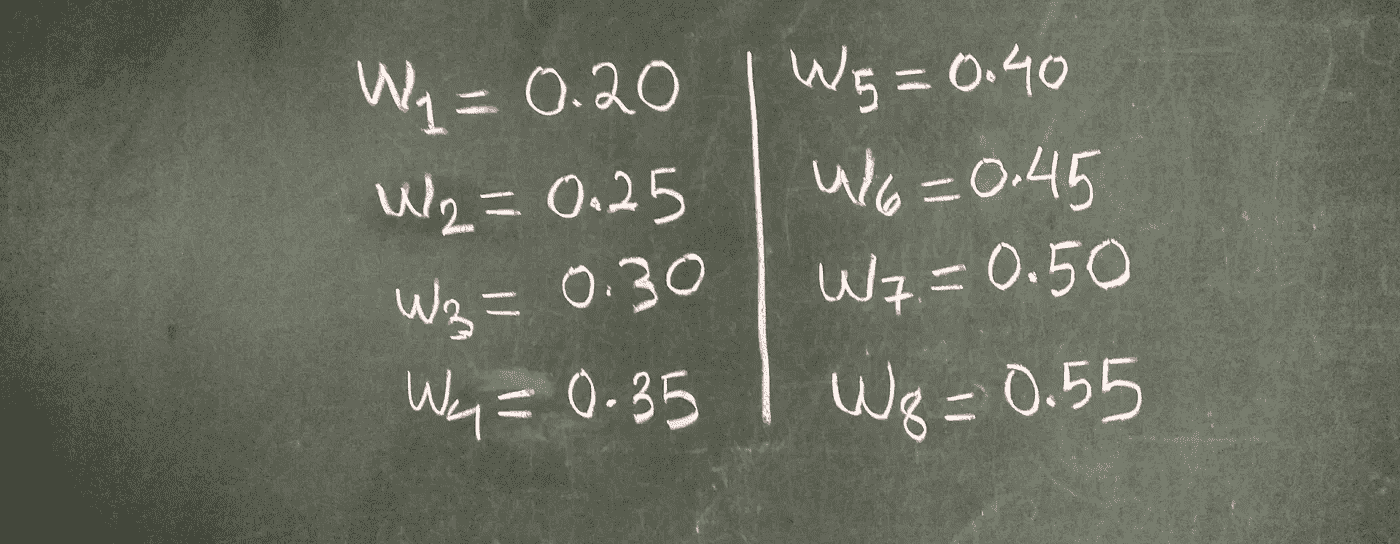 W1 = 0.20
W2 = 0.25
W3 = 0.30
W4 = 0.35
W5 = 0.40
W6 = 0.45
W7 = 0.50
W8 = 0.55